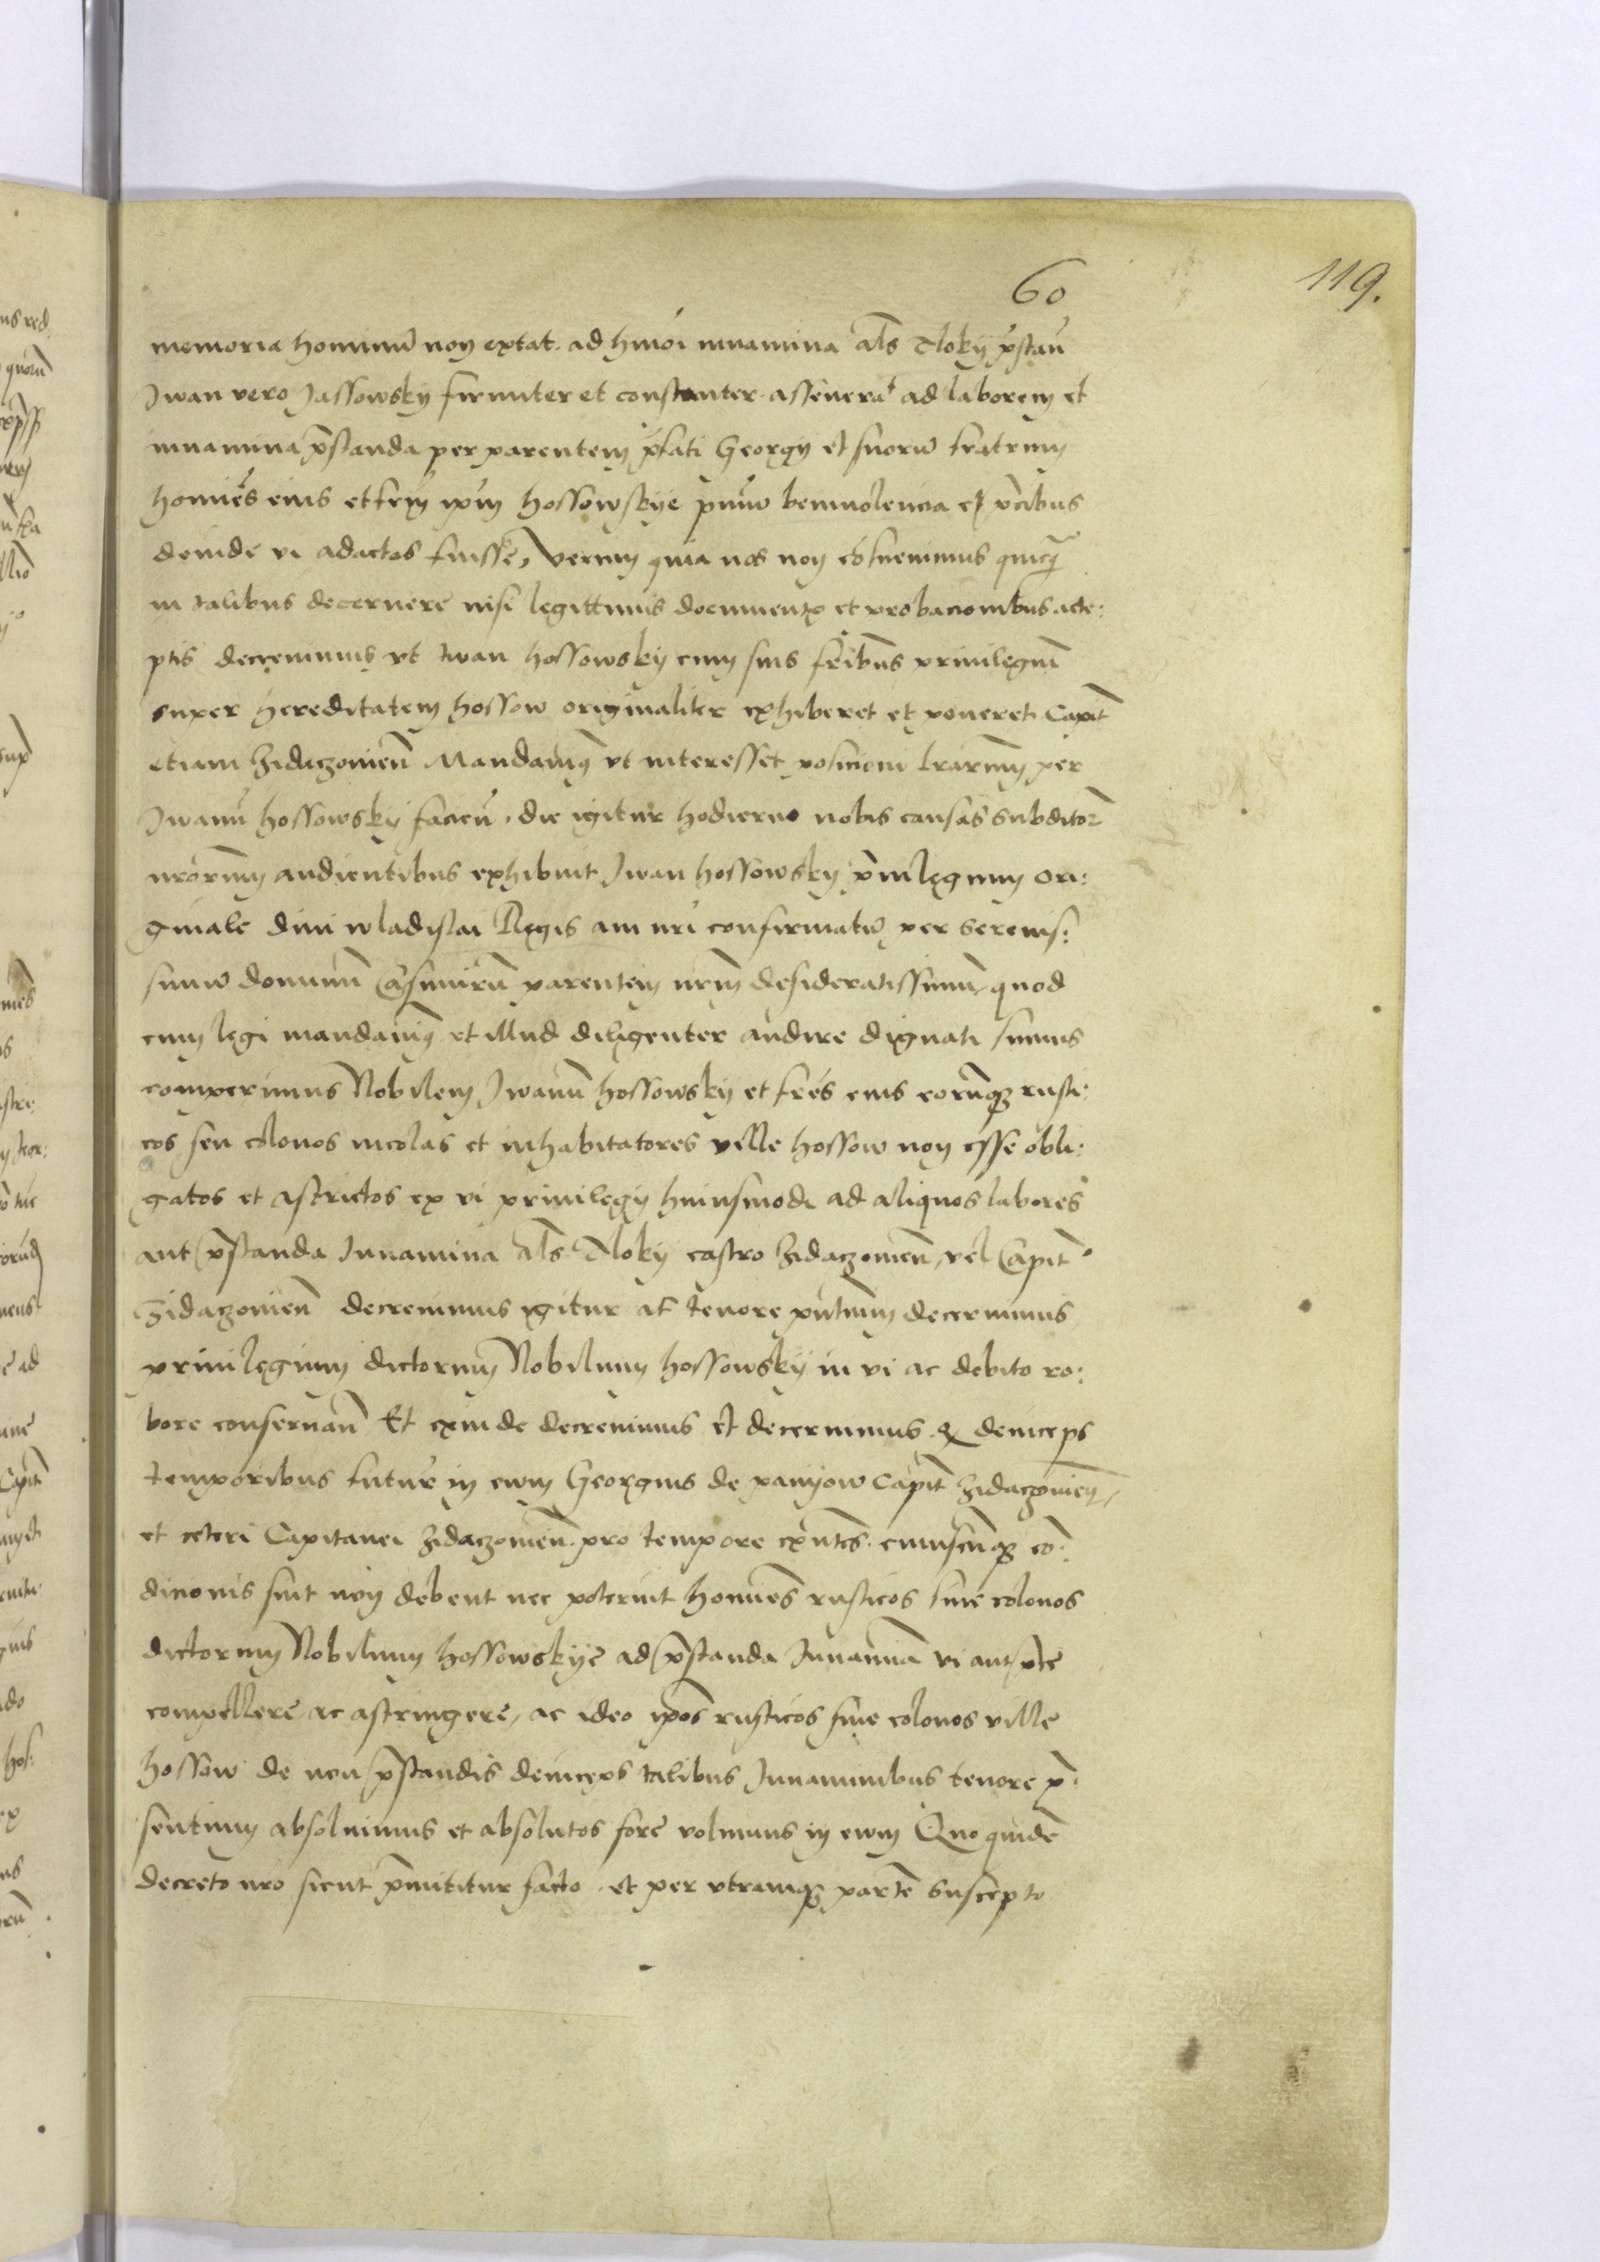 60
119.
memoria hominū non extat. ad hmōi iuuamina als Tloky p̄stan̄
Iwan vero Jassowsky firmiter et constanter asseuerat ad laborem et
iuuamina p̄standa per parentem p̄fati Georgy et suorū fratrum
homīes eius et frm̄ ip̄m hossowskye primū beniuolencia et p̄cibus
deinde vi adactos fuisse, Verum quia nos non cōsueuimus quicq̄
in talibus decernere nisi legittimis documentꝭ et probacionibus acce:
ptis decreuimus vt Iwan hossowsky cum suis fribus priuilegiū
super hereditatem hossow originaliter exhiberet et poneret. Capit̄
etiam Zidaczouien̄ Mandauimꝰ vt interesset posicioni lrarum per
Iwanū hossowsky facien̄. die igitur hodierno nobis causas subditoꝝ
nrōrum audientibus exhibuit Iwan hossowsky p̄uilegium ori:
ginale diui wladislai Regis aui nrī confirmatū per serenis:
simū dominū Casimirū parentem nrm̄ desideratissimū, quod
cum legi mandauimꝰ et illud diligenter audire dignati sumus
comperimus Nobilem Iwanū hossowsky et frēs eius eorūqꝫ rusti:
cos seu colonos incolas et inhabitatores ville hossow non esse obli:
gatos et astrictos ex vi priuilegy huiusmodi ad aliquos labores
aut p̄standa Iuuamina als Tloky castro Zidaczouien̄, vel Capit̄
Zidaczouien̄ decreuimus igitur at tenore pn̄tium decernimus
priuilegium dictorum Nobilium hossowsky in vi ac debito ro:
bore conseruan̄ Et exinde decreuimus et decernimus qꝫ deinceps
temporibus futur̄ in ewm Georgius de panyow Capit̄ Zidaczouien̄,
et ceteri Capitanei Zidaczouien̄. pro tempore exn̄tes. cuiuscūqꝫ cō:
dicionis sint non debent nec poterint homīes rusticos siue colonos
dictorum Nobilium hossowskye ad p̄standa Iuuamīa vi aut p̄ce
compellere, ac astringere, ac ideo ip̄os rusticos siue colonos ville
hossow de non p̄standis deinceps talibus Iuuaminibus tenore p̄:
sentium absoluimus et absolutos fore volumus in ewm Quo quidē
decreto nrō sicut p̄mittitur facto. et per vtramqꝫ partē suscepto